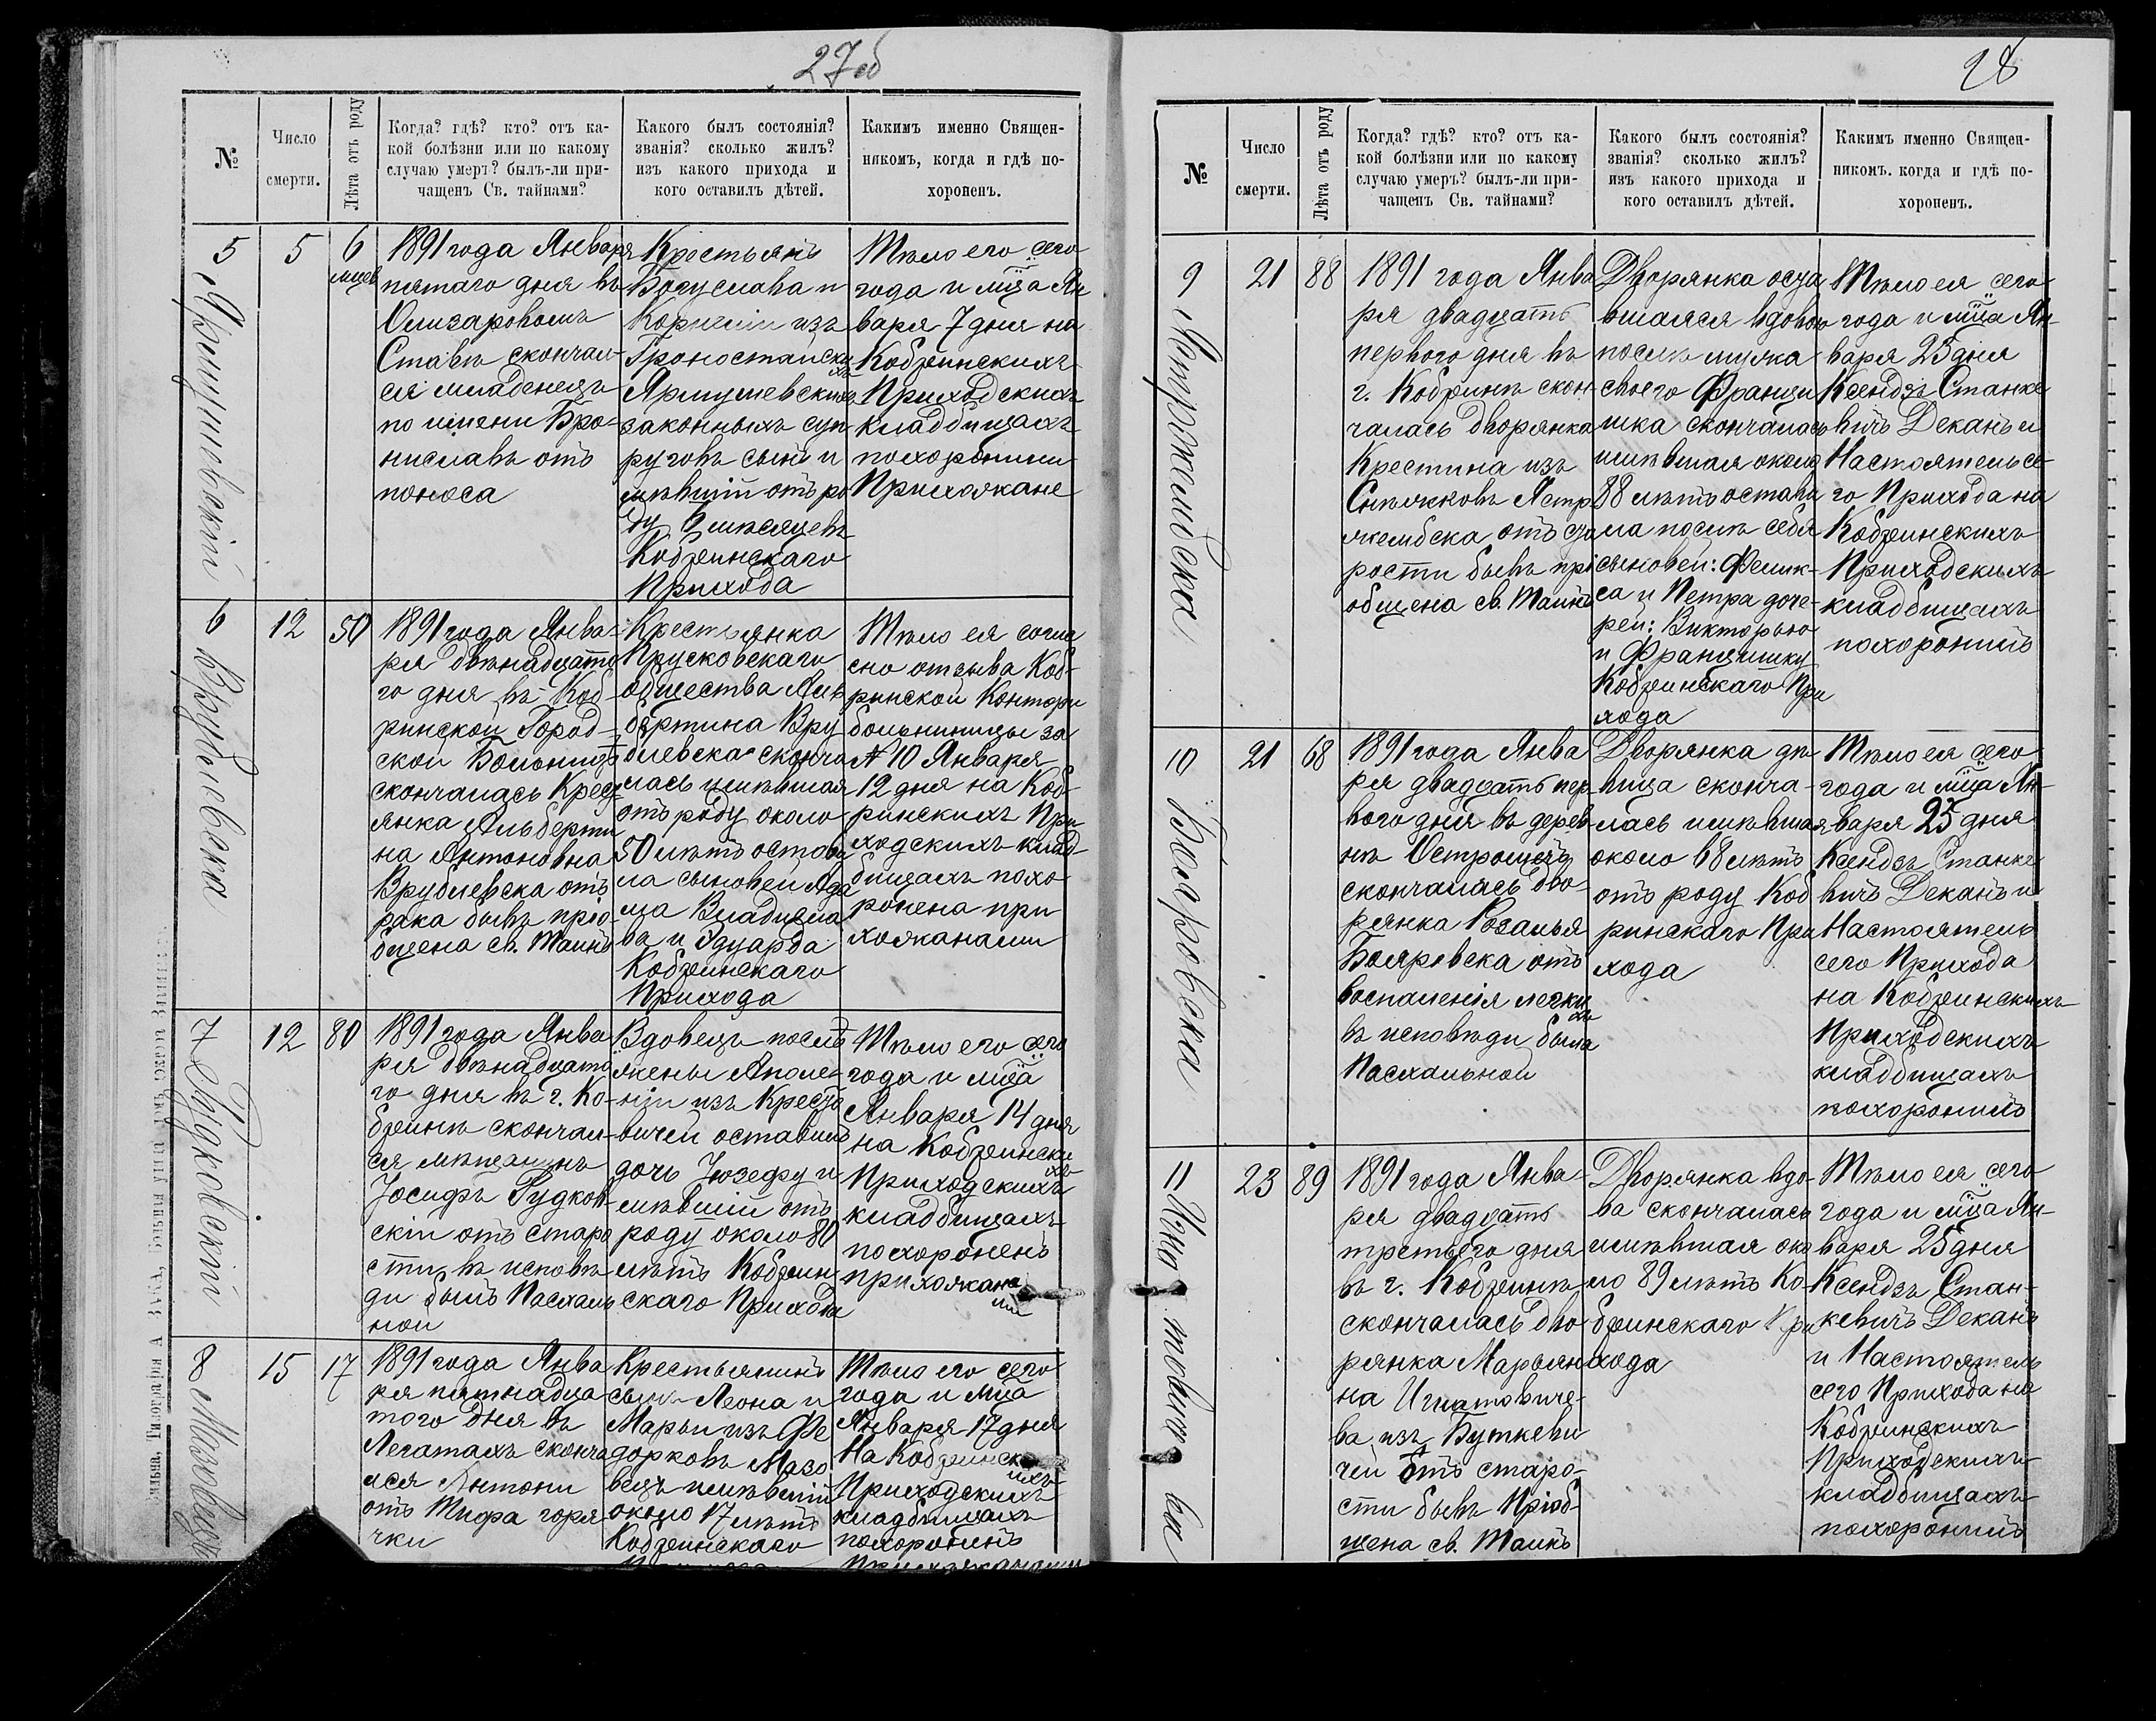 27об
№
Число
смерти.
Лѣта отъ роду
Когда? гдѣ? кто? отъ ка-
кой болѣзни или по какому
случаю умеръ? былъ-ли при-
чащенъ Св. тайнами?
Какого былъ состоянія?
званія? сколько жилъ?
изъ какого прихода и
кого оставилъ дѣтей.
Какимъ именно Священ-
никомъ, когда и гдѣ по-
хороненъ.
5
Ярмушевскій
5
6
мцев
1891 года Января
пятаго дня въ
Олизаровомъ
Ставѣ скончал-
ся младенецъ
по имени Бро-
ниславъ отъ
поноса
Крестьянъ
Богуслава и
изъ
Гроностайски
хъ
Ярмушевскихъ
законныхъ суп
руговъ сынъ и
мѣвшій отъ ро
ду 6 мѣсяцевъ
Кобринскаго
Прихода
Тѣло его сего
года и мца Ян
варя 7 дня на
Кобринскихъ
Приходскихъ
кладбищахъ
похоронили
Прихожане
6
Врублевска
12
50
1891 года Янва-
ря двѣнадцато
го дня въ Коб-
ринской Город-
ской Больницѣ
скончалась Крес
янка Альберти
на Антоновна
Врублевска отъ
рака бывъ пріо-
бщена св. Таинъ
Крестьянка
Прусковскаго
общества Аль
бертина Вру
блевска сконча
лась имѣвшая
отъ роду около
50 лѣтъ остави
ла сыновей Ада
ма Владисла
ва и Эдуарда
Кобринскаго
Прихода
Тѣло ея согла
сно отзыва Коб-
ринской Конторы
больницы за
№ 10 Января
12 дня на Коб-
ринскихъ При
ходскихъ клад-
бищахъ похо
ронена при
хожанами
7
Гудковскій
12
80
1891 года Янва
ря двѣнадцато
го дня въ г. Ко-
бринѣ скончал-
ся мѣщанинъ
Іосифъ Гудков-
скій отъ старо
сти въ исповѣ
ди былъ Пасхаль
ной
Вдовецъ послѣ
жены Аполо-
ніи изъ
вичей оставилъ
дочь Юзефу и
мѣвшій отъ
роду около 80
лѣтъ Кобрин
скаго Прихода
Тѣло его сего
года и мца
Января 14 дня
на Кобрински
хъ
Приходскихъ
кладбищахъ
похороненъ
прихожана
ми
8
Мазовецъ
15
17
1891 года Янва
ря пятнадца
того дня въ
Легатахъ сконча
лся Антони
отъ Тифа горя-
чки
Крестьянинъ
сынъ Леона и
Марьи изъ Фе
дорковъ Мазо
вецъ имѣвшій
около 17 лѣтъ
Кобринскаго
Тѣло его сего
года и мца
Января 17 дня
На Кобринск
ихъ
Приходскихъ
кладбищахъ
похороненъ
Прихожанами
28
№
Число
смерти.
Лѣта отъ роду
Когда? гдѣ? кто? отъ ка-
кой болѣзни или по какому
случаю умеръ? былъ-ли при-
чащенъ Св. тайнами?
Какого былъ состоянія?
званія? сколько жилъ?
изъ какого прихода и
кого оставилъ дѣтей.
Какимъ именно Священ-
никомъ. когда и гдѣ по-
хороненъ.
9
21
88
1891 года Янва
ря двадцать
перваго дня въ
г. Кобринѣ скон
чалась дворянка
Крестина изъ
жембска отъ ста
рости бывъ прі
общена св. Таинъ
Дворянка оста
вшаяся вдовою
послѣ мужа
своего Франци
шка скончалась
имѣвшая около
88 лѣтъ остави
ла послѣ себя
сыновей: Феликс-
са и Петра доче-
рей: Викторью
и Францишку
Кобринскаго При
хода
Тѣло ея сего
года и мца Ян-
варя 25 дня
Ксендзъ Станке
вичъ Деканъ и
Настоятель се-
го Прихода на
Кобринскихъ
Приходскихъ
кладбищахъ
похоронилъ
10
Бояровска
21
68
1891 года Янва
ря двадцать пер-
ваго дня въ дерев-
нѣ Остромечъ
скончалась дво-
рянка Розалья
Бояровска отъ
воспаленія легки
хъ
въ исповѣди была
Пасхальной
Дворянка дѣ
вица сконча-
лась имѣвшая
около 68 лѣтъ
отъ роду Коб
ринскаго При
хода
Тѣло ея сего
года и мца Ян-
варя 25 дня
Ксендзъ Станке
вичъ Деканъ и
Настоятель
сего Прихода
на Кобринскихъ
Приходскихъ
кладбищахъ
похоронилъ
11
Игнатовичева
23
89
1891 года Янва-
ря двадцать
третьего дня
въ г. Кобринѣ
скончалась дво-
рянка Марьян
на Игнатовиче-
ва изъ Буткеви
чей отъ старо-
сти бывъ Пріоб-
щена св. Таинъ
Дворянка вдо-
ва скончалась
имѣвшая око
ло 89 лѣтъ Ко-
бринскаго При
хода
Тѣло ея сего
года и мца Ян-
варя 25 дня
Ксендзъ Стан-
кевичъ Деканъ
и Настоятель
сего Прихода на
Кобринскихъ
Приходскихъ
кладбищахъ
похоронилъ